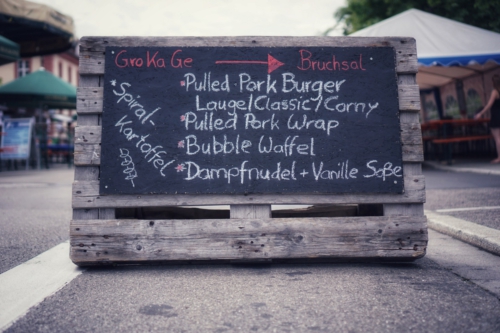 GroKaGe → Bruchsal
*Pulled Pork Burger
Lauge/Classic/Corny
*Pulled Pork Wrap
*Bubble Waffel
*Dampfnudel + Vanille Soße
*Spiral-
Kartoffel